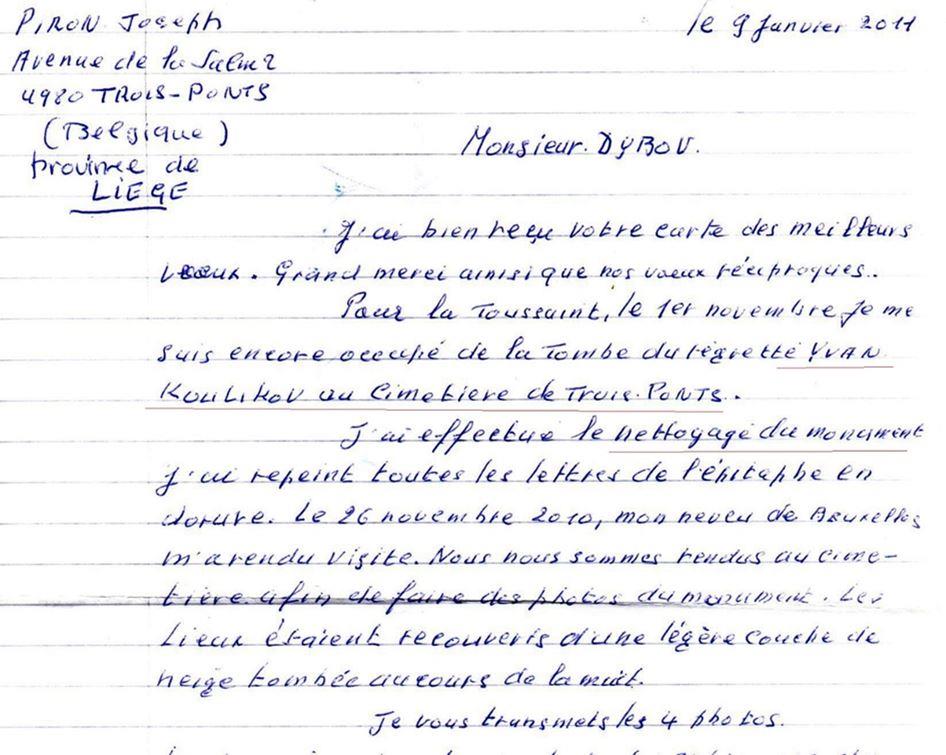 PIRON Joseph
le 9 Janvier 2011
Avenue de la Salm 2
4980 TROIS-PONTS
(Belgique)
Province de
LIEGE
Monsieur. DYBOV.
J'ai bien reçu votre carte des meilleurs
voeux. Grand merci ainsi que nos voeux réciproques..
Pour la Toussaint, le 1er novembre, je me
suis encore occupé de la tombe du régretté YVAN
KOULIKOV au Cimetière de Trois-PONTS.
J'ai effectué le nettoyage du monument
j'ai repeint toutes les lettres de l'épitaphe en
dorure. Le 26 novembre 2010, mon neveu de Bruxelles
m'a rendu visite. Nous nous sommes rendus au cime-
tière afin de faire des photos du monument. Les
Lieux étaient recouverts d'une légère couche de
neige tombée au cours de la nuit.
Je vous transmets les 4 photos.